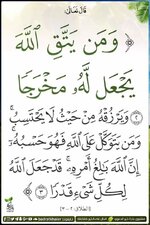 قال تعالى
﴿ وَمَن يَتَّقِ ٱللَّهَ
يَجْعَل لَّهُۥ مَخْرَجًا
﴿٢﴾ وَيَرْزُقْهُ مِنْ حَيْثُ لَا يَحْتَسِبُ ۚ
وَمَن يَتَوَكَّلْ عَلَى ٱللَّهِ فَهُوَ حَسْبُهُۥٓ ۚ
إِنَّ ٱللَّهَ بَٰلِغُ أَمْرِهِۦ ۚ قَدْ جَعَلَ ٱللَّهُ
لِكُلِّ شَىْءٍ قَدْرًا ﴿٣﴾
[الطلاق: ٢ - ٣]